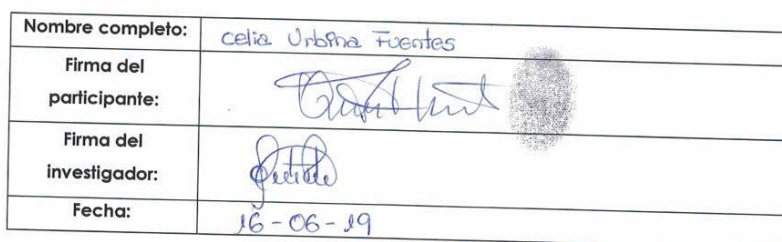 Nombre completo: Celia Urbina Fuentes
Firma del
participante:
Firma del
investigador:
Fecha: 16-06-19